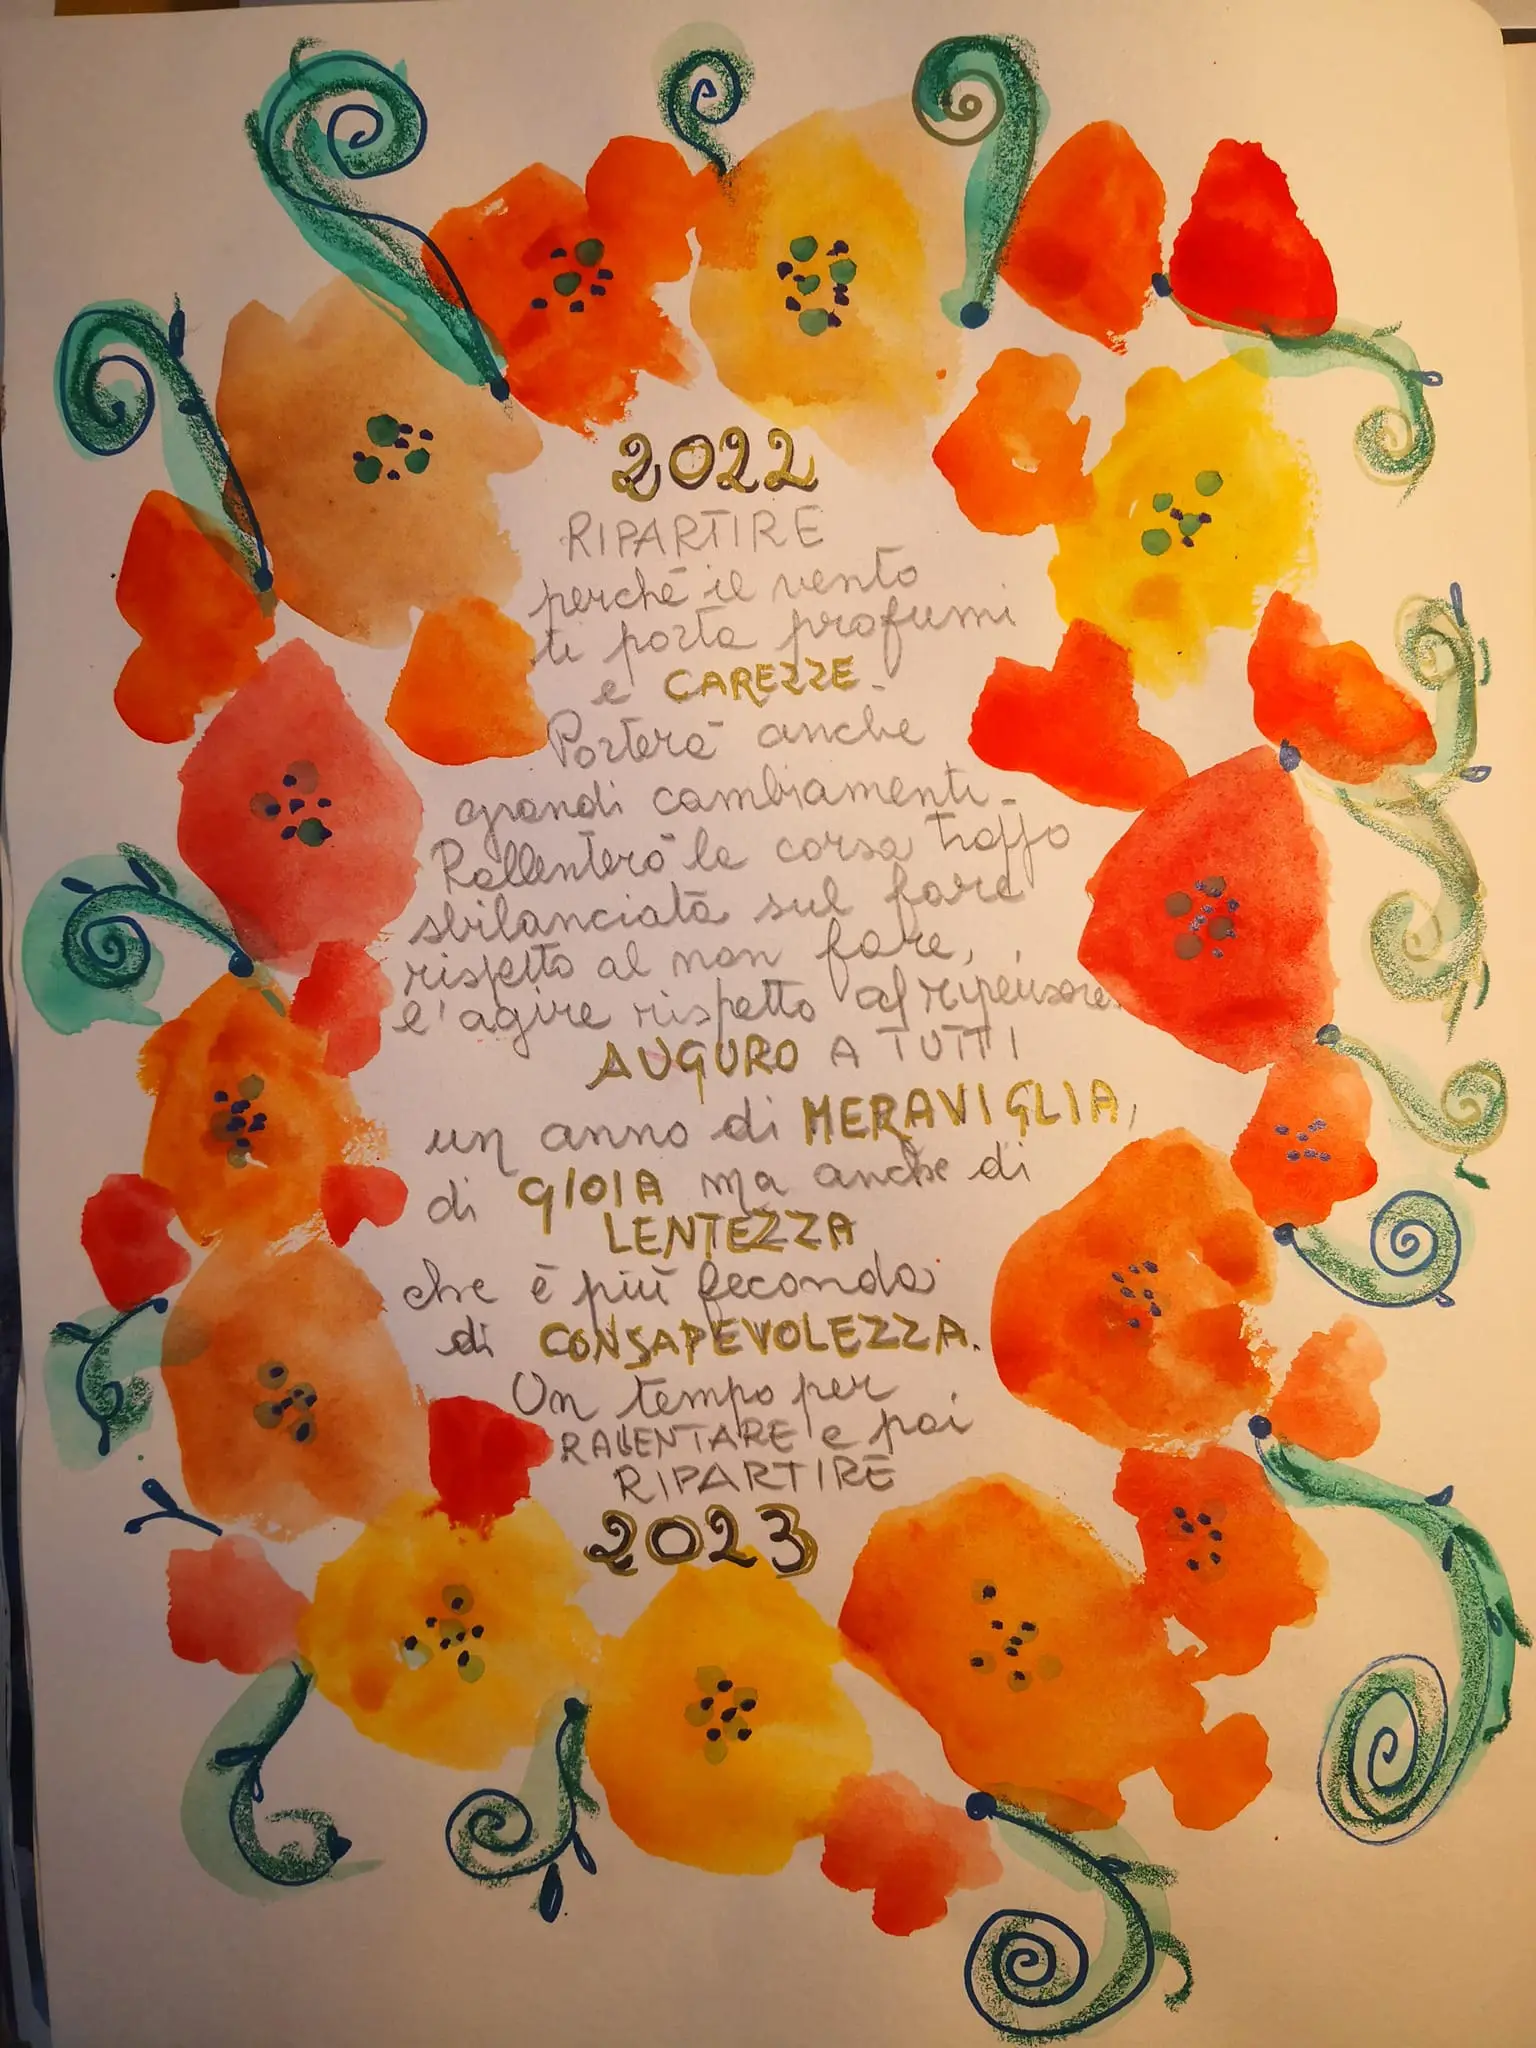 2022
RIPARTIRE
perché il vento
ti porta profumi
e CAREZZE.
Porterà anche
grandi cambiamenti.
Rallenterò la corsa troppo
sbilanciata sul fare
rispetto al non fare,
l'agire rispetto al ripensare.
AUGURO A TUTTI
un anno di MERAVIGLIA,
di GIOIA ma anche di
LENTEZZA
che è più feconda
di CONSAPEVOLEZZA.
Un tempo per
RALLENTARE e poi
RIPARTIRE
2023